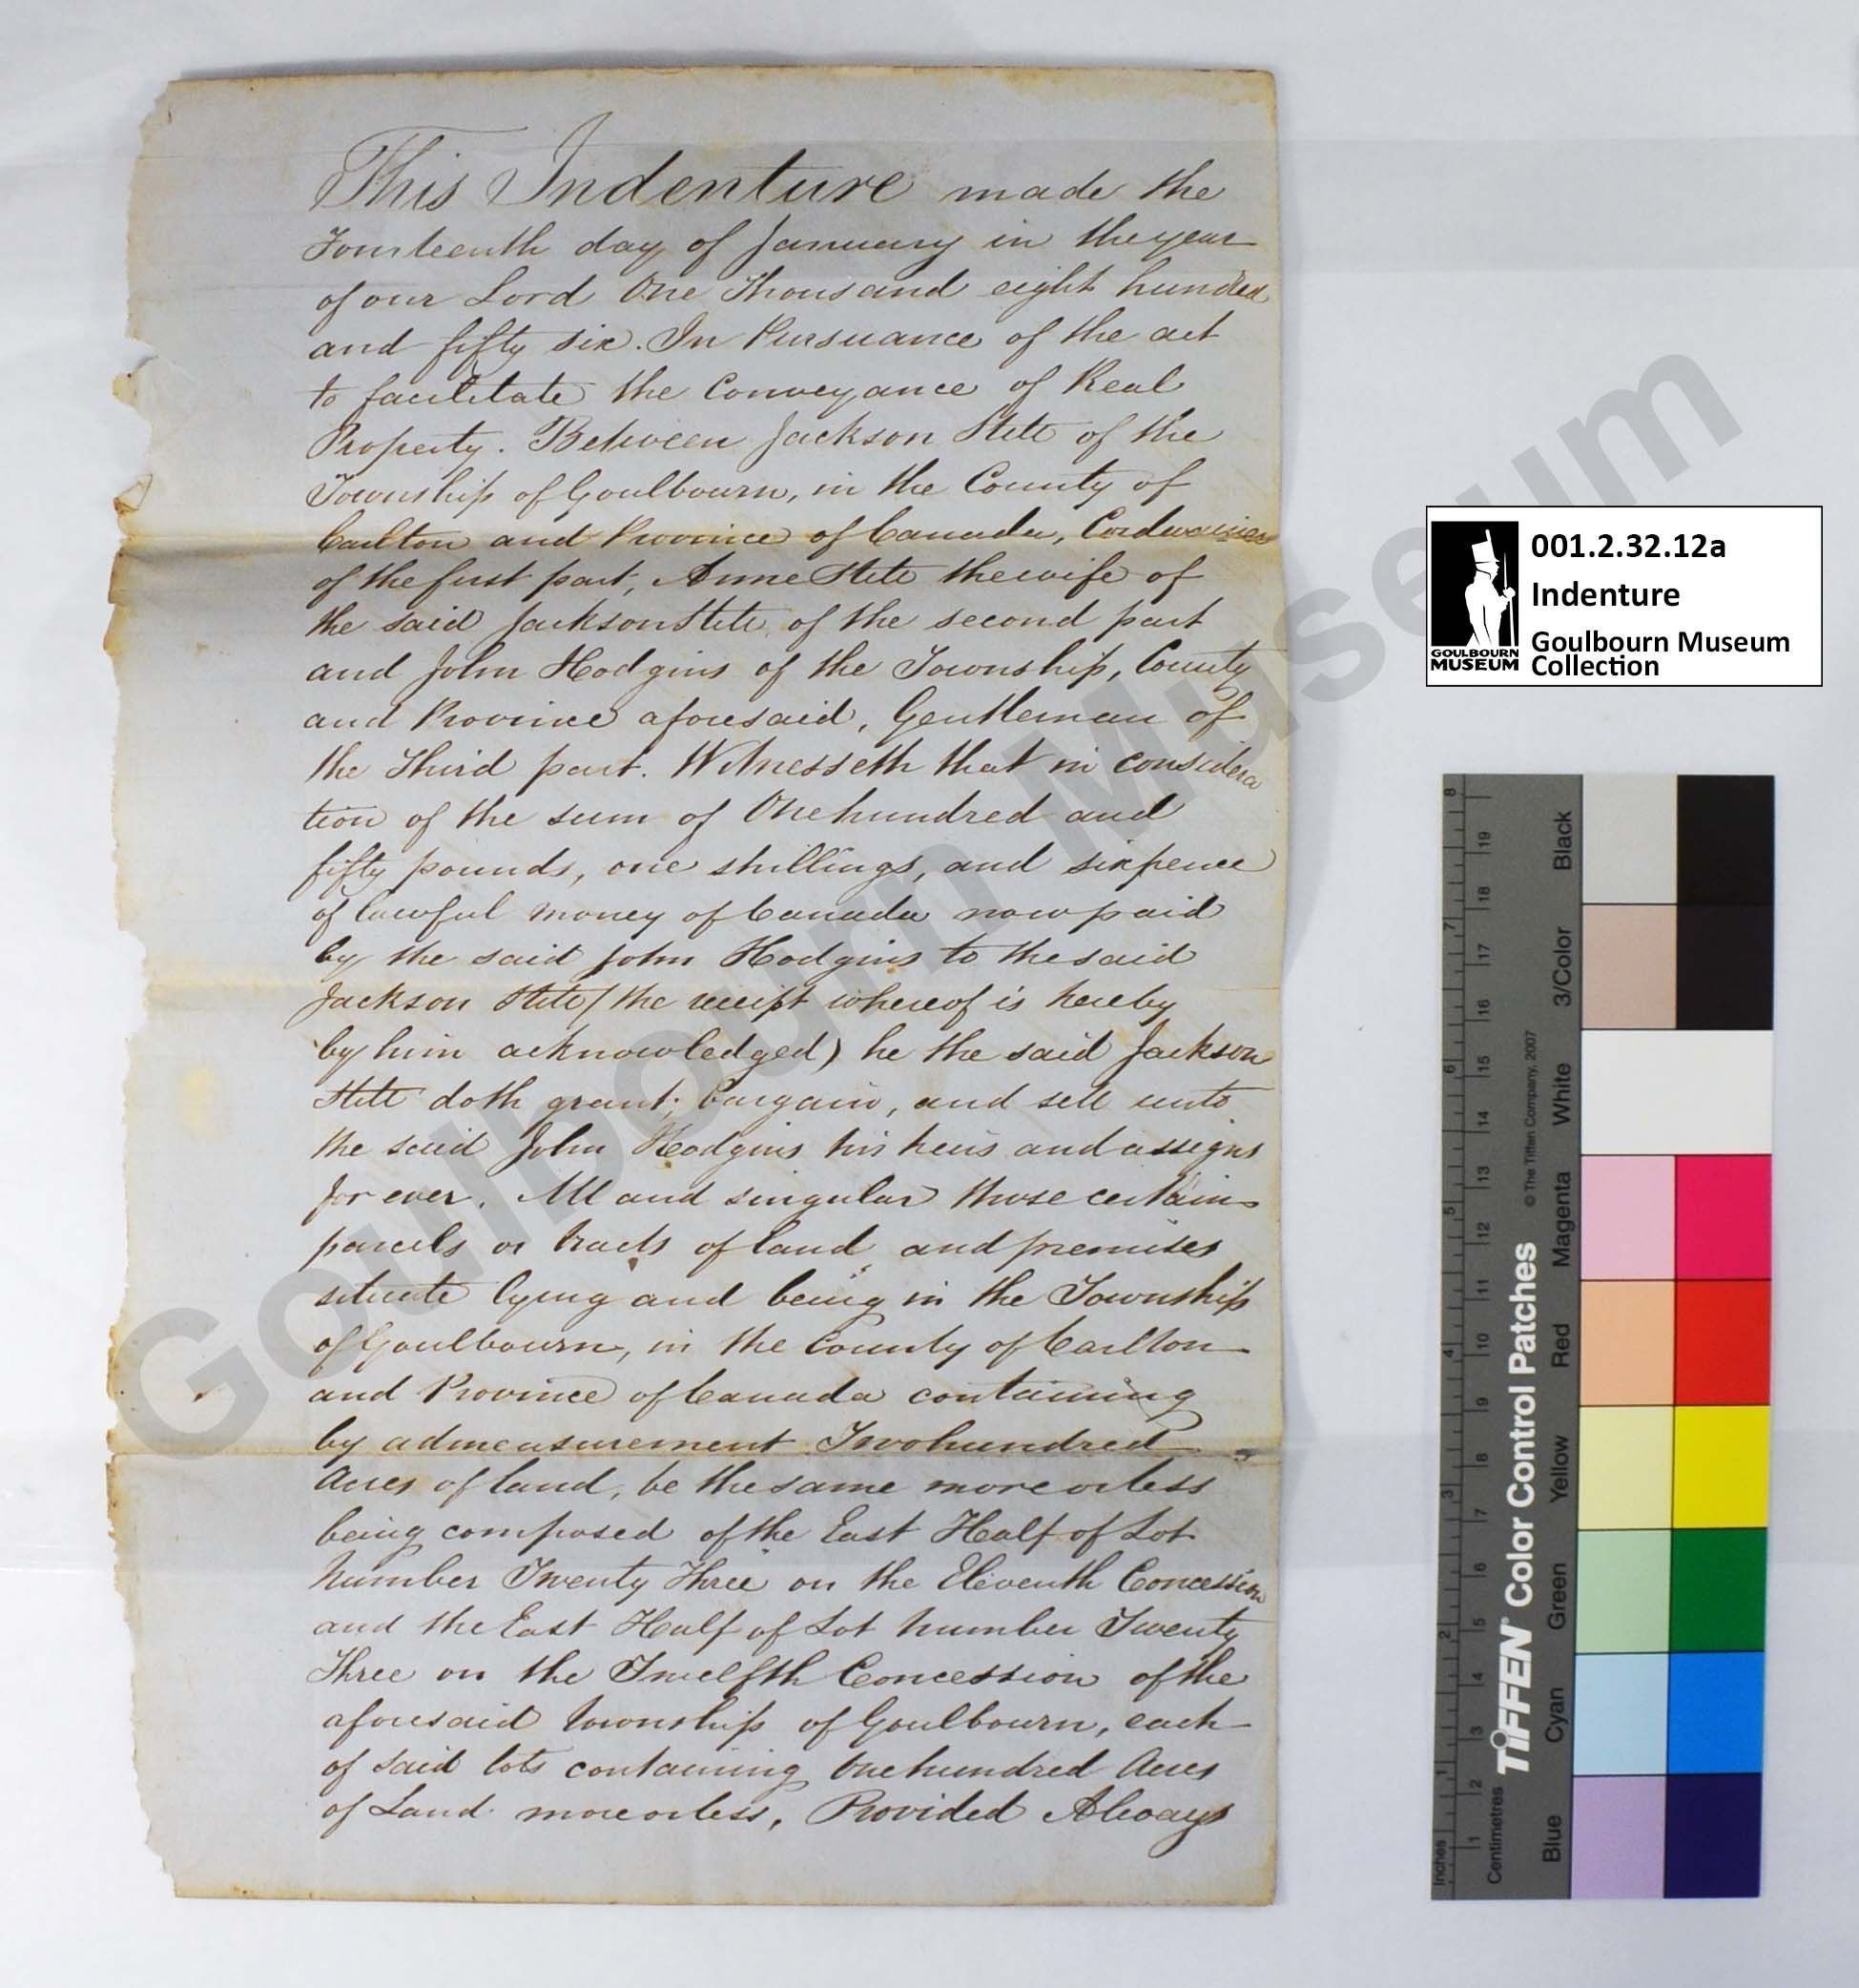 This Indenture made the
Fourteenth day of January in the year
of our Lord One Thousand eight hundred
and fifty six. In Pursuance of the act
to facilitate the Conveyance of Real
Property. Between Jackson Stitt of the
Township of Goulbourn, in the County of
Carlton and Province of Canada, Cordwainer
of the first part, Anne Stitt the wife of
the said Jackson Stitt, of the second part
and John Hodgins of the Township, County
and Province aforesaid, Gentleman of
the Third part. Witnesseth that in considera
tion of the sum of One hundred and
fifty pounds, one shillings, and sixpence
of lawful money of Canada now paid
by the said John Hodgins to the said
Jackson Stitt (the receipt whereof is hereby
by him acknowledged) he the said Jackson
Stitt doth grant, bargain, and sell unto
the said John Hodgins his heirs and assigns
for ever. All and singular those certain
parcels or tracts of land and premises
situate lying and being in the Township
of Goulbourn, in the County of Carlton
and Province of Canada containing
by admeasurement Two hundred
Acres of land, be the same more or less
being composed of the East Half of Lot
Number Twenty Three on the Eleventh Concession
and the East Half of Lot number Twenty
Three on the Twelfth Concession of the
aforesaid township of Goulbourn, each
of said lots containing One hundred Acres
of Land more or less, Provided Always
001.2.32.12a
Indenture
Goulbourn Museum
Collection
GOULBOURN
MUSEUM
Goulbourn Museum
TIFFEN Color Control Patches
© The Tiffen Company, 2007
Inches
1 2 3 4 5 6 7 8
Centimetres
1 2 3 4 5 6 7 8 9 10 11 12 13 14 15 16 17 18 19
Blue
Cyan
Green
Yellow
Red
Magenta
White
3/Color
Black